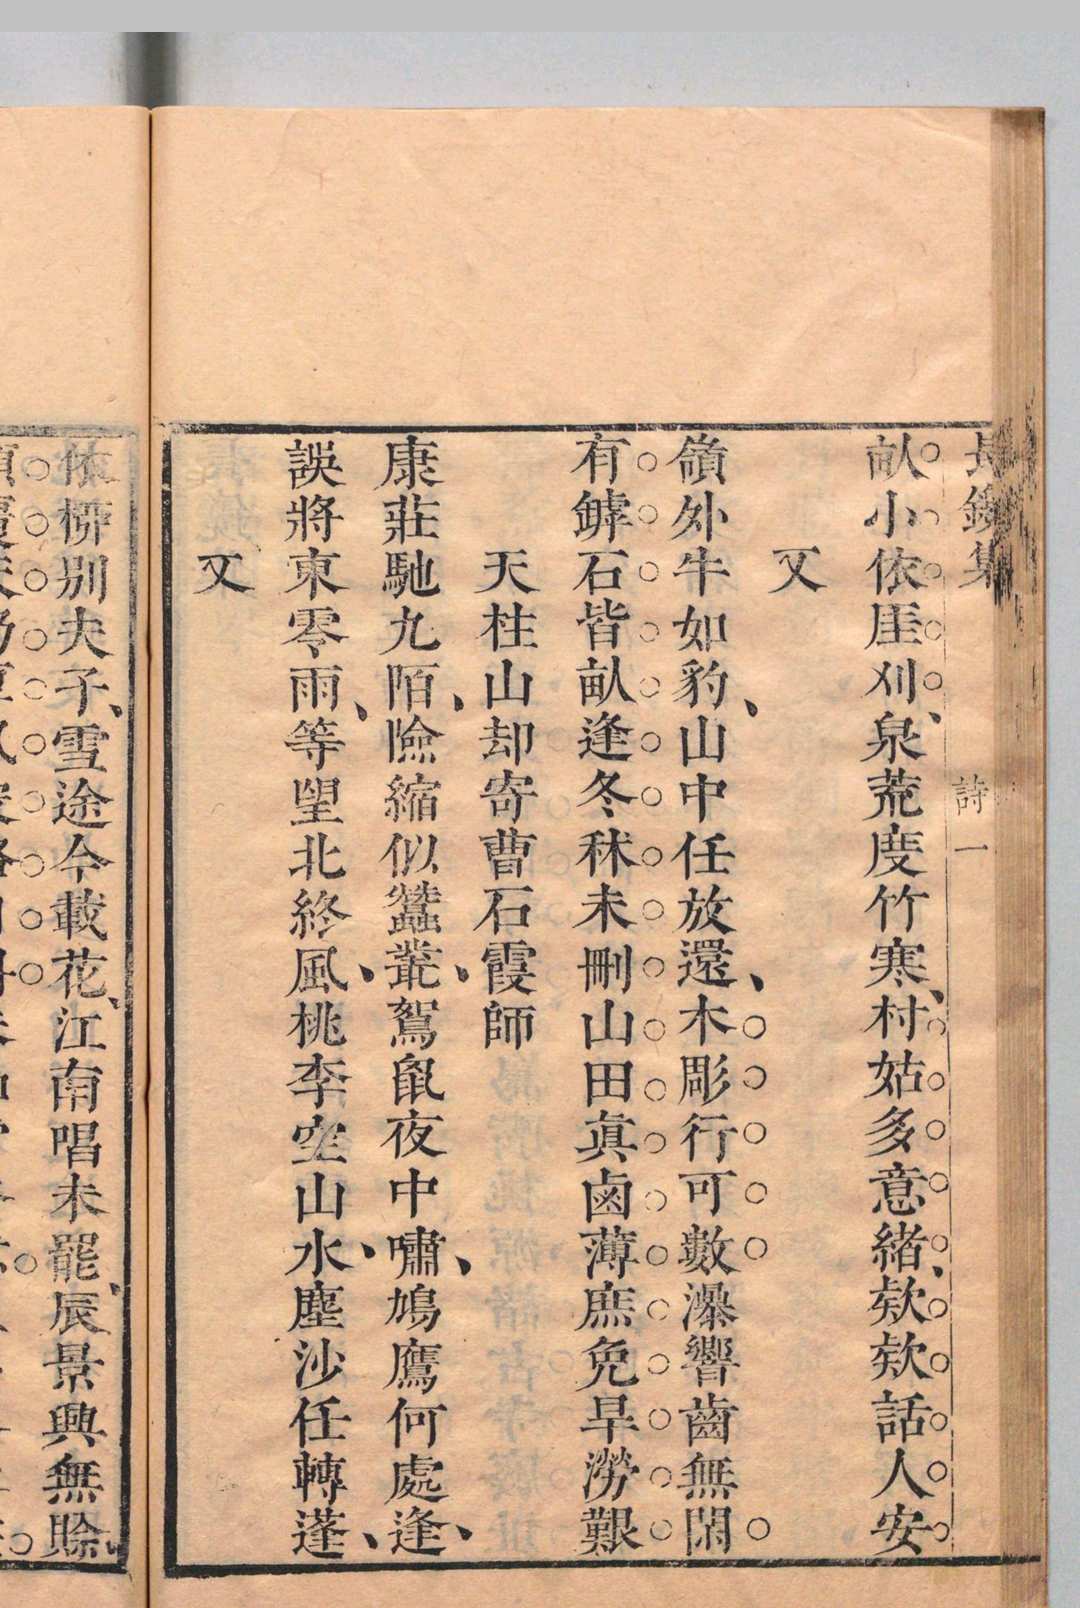 長鑱集
詩一
畝小依厓刈泉荒度竹寒村姑多意緒欸欸話人安
又
嶺外牛如豹山中任放還木彫行可數瀑響齒無閑
有罅石皆畝逢冬秫未刪山田眞鹵薄庶免旱澇艱
天柱山却寄曹石霞師
康莊馳九陌險縮似蠶叢鴽鼠夜中嘯鳩鷹何處逢
誤將東零雨等望北終風桃李空山水塵沙任轉蓬
又
依檉別夫子雪途今載花江南唱未罷辰景興無賒